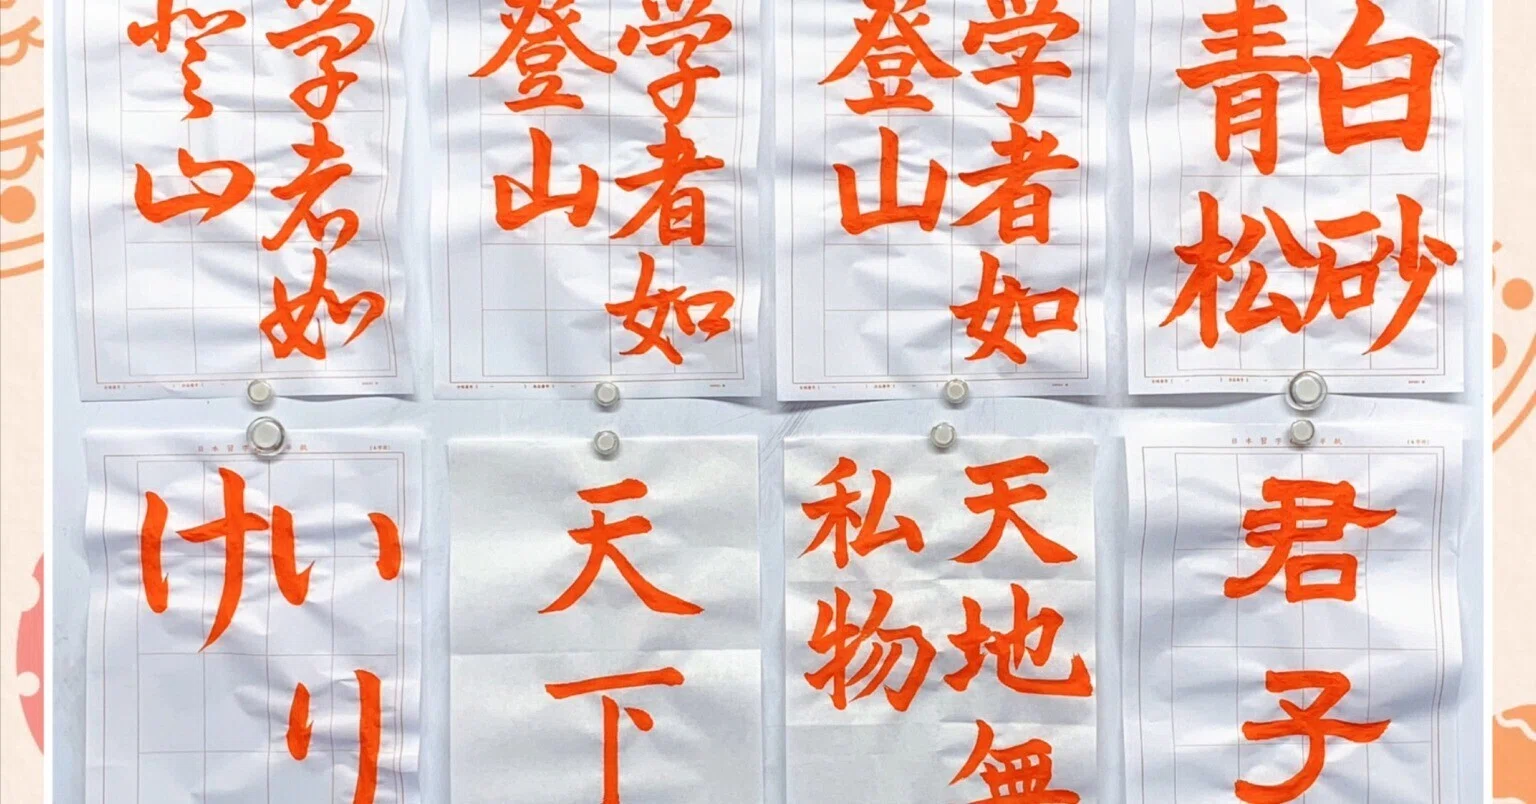 白砂
青松
学者如
登山
学者如
登山
学者如
登山
君子
天地無
私物
天下
いり
け